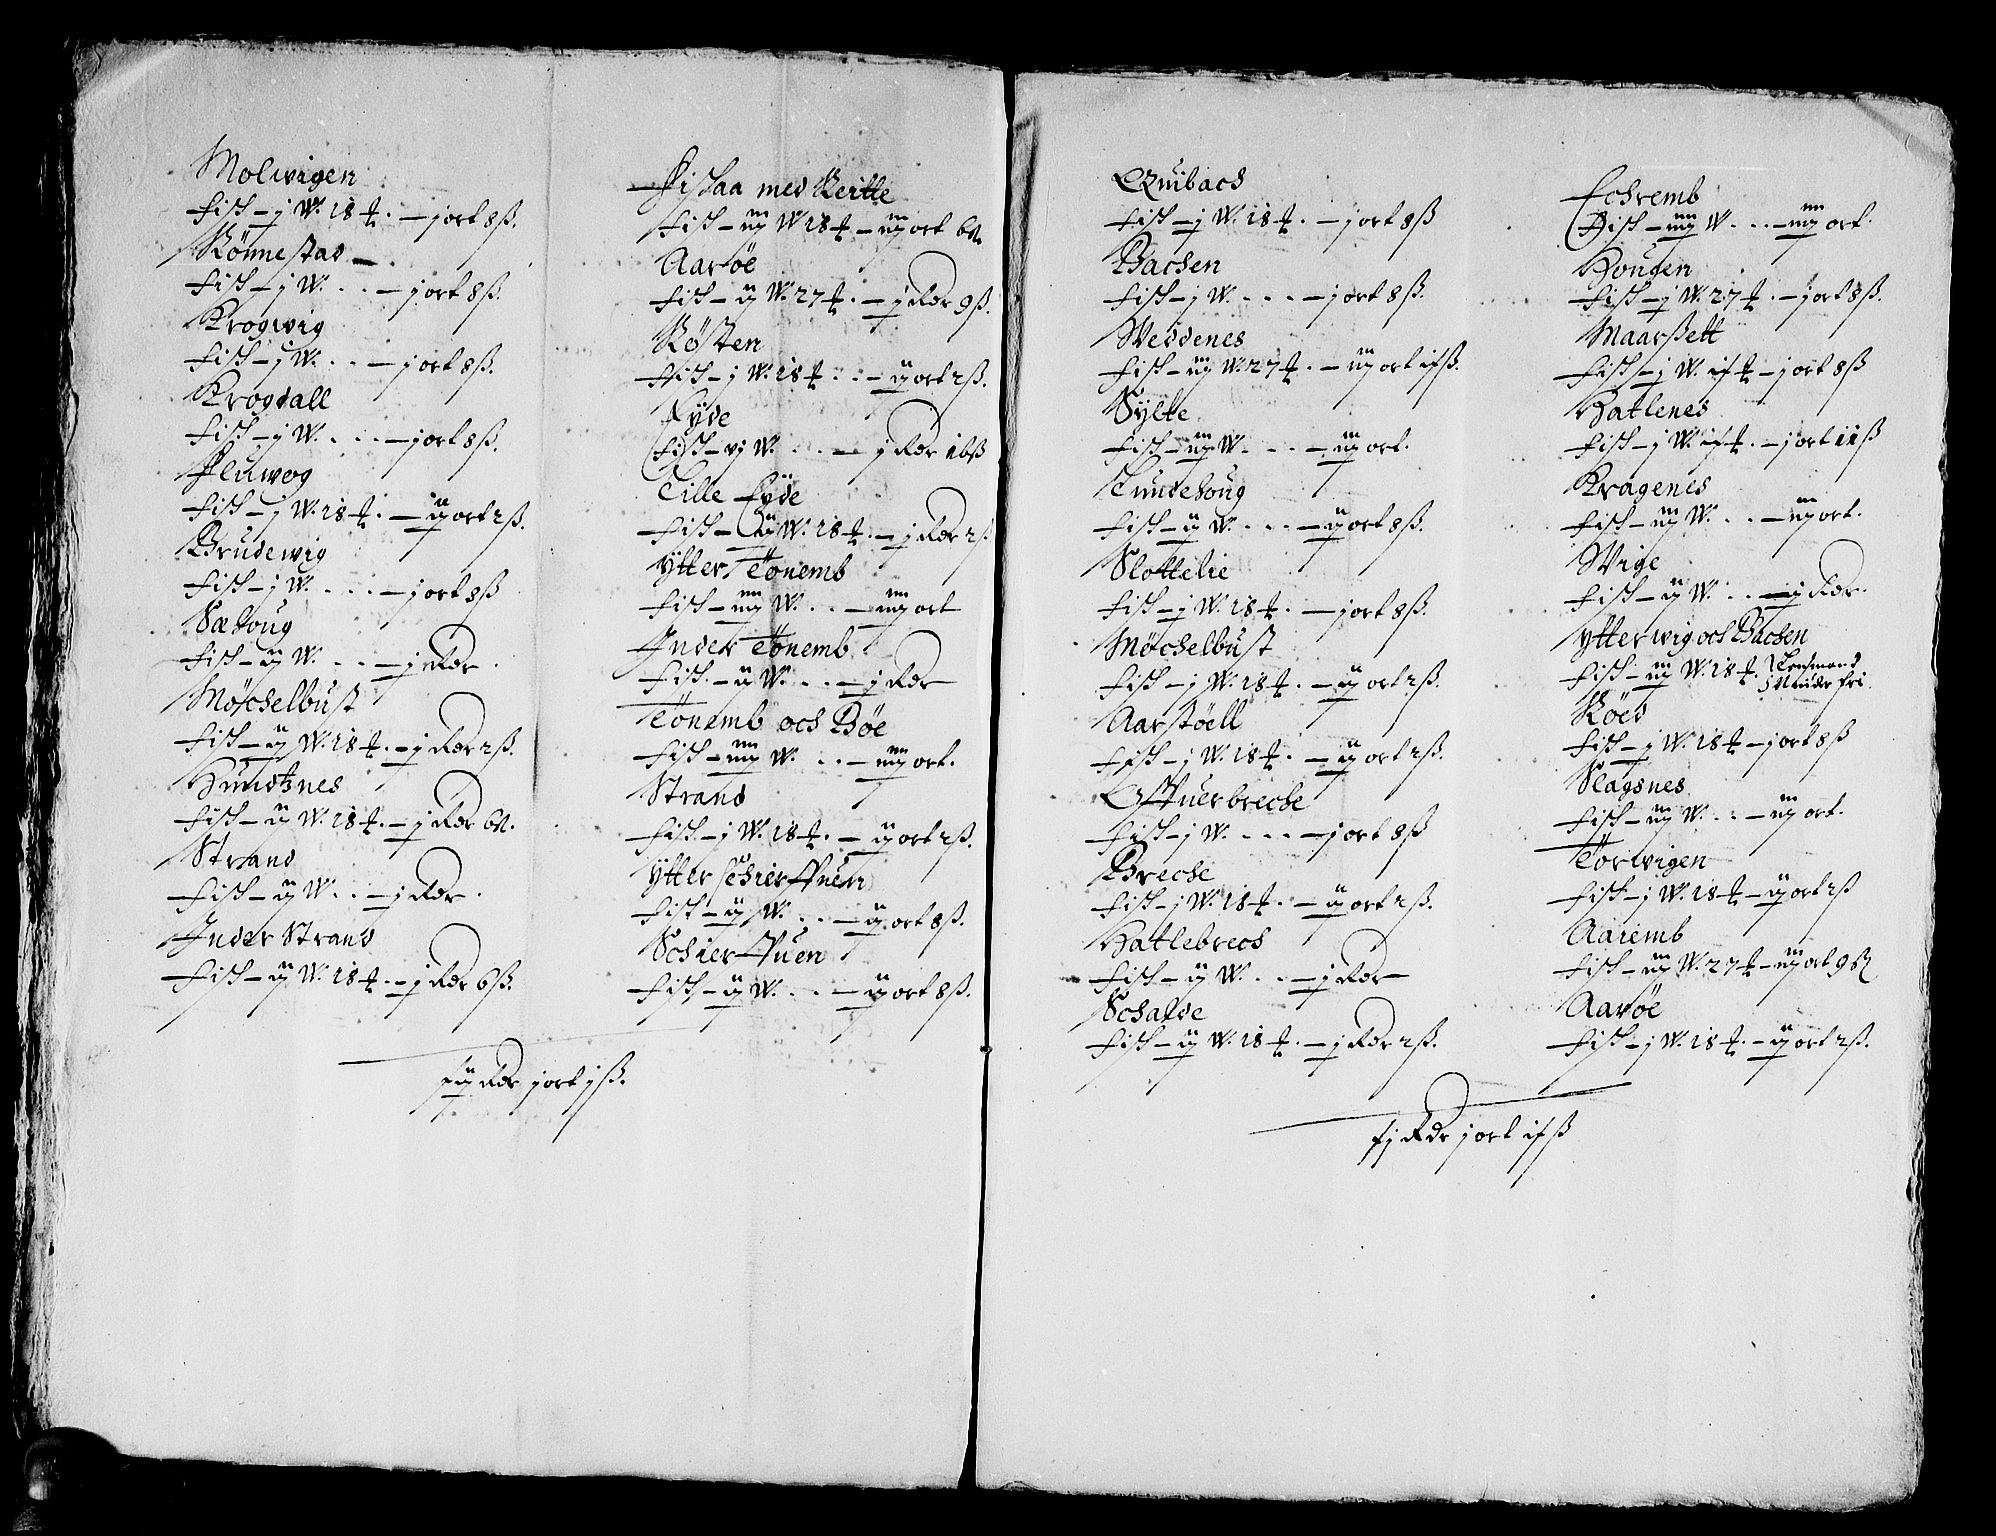 Molwigen
Fisk – j W. 18 ℔. – j ort 8 ß.
Rönnestad –
Fisk – j W. . . – j ort 8 ß.
Krogwig
Fisk – j W. . . – j ort 8 ß.
Krogdall
Fisk – j W. . . – j ort 8 ß.
Fluwog
Fisk – j W. 18 ℔. – ij ort 2 ß.
Brudewig
Fisk – j W. . . . – j ort 8 ß
Sæhoug
Fisk – ij W. . . – j Rdr.
Möschelbust
Fisk – ij W. 18 ℔. – j Rdr 2 ß.
Hundznes
Fisk – ij W. 18 ℔. – j Rdr 6 ß.
Strand
Fisk – ij W. . . – j Rdr.
Inder Strand
Fisk – ij W. 18 ℔. – j Rdr 6 ß.
Fiskaa med Reitte
Fisk – iij W 18 ℔ – iij ort 6 ß
Aaröe
Fisk – ij W. 27 ℔. – j Rdr 9 ß.
Rösten
Fisk – j W. 18 ℔ . . – ij ort 2 ß.
Eyde
Fisk – vj W. . . – j Rdr 16 ß
Lille Eyde
Fisk – ij W. 18 ℔. – j Rdr 2 ß
Ytter Tönemb
Fisk – iiij W. . . – iiij ort
Inder Tönemb
Fisk – ij W. . . – j Rdr
Tönemb och Böe
Fisk – iiij W. . . – iiij ort.
Strand
Fisk – j W. 18 ℔. – ij ort 2 ß.
Ytter Schierffuen
Fisk – ij W. . . – ij ort 8 ß.
Schierffuen
Fisk – ij W. . . – ij ort 8 ß.
Rdr j ort j ß.
Quibach
Fisk – j W. 18 ℔. – j ort 8 ß
Bachen
Fisk – j W. . . . – j ort 8 ß.
Weddenes
Fisk – iij W. 27 ℔. – iij ort 15 ß.
Sylte
Fisk – iij W. . . . – iij ort.
Lundehoug
Fisk – ij W. . . . – ij ort 8 ß.
Slottelie
Fisk – j W. 18 ℔. – j ort 8 ß.
Möschelbust
Fisk – j W. 18 ℔. – ij ort 2 ß.
Aarstöell
Fisk – j W. 18 ℔. – ij ort 2 ß.
Offuerbreche
Fisk – j W. . . . – j ort 8 ß
Breche
Fisk – j W. 18 ℔. – ij ort 2 ß.
Hatlebrech
Fisk – ij W. . . – j Rdr –
Schalde
Fisk – ij W. 18 ℔. – j Rdr 2 ß.
Echremb
Fisk – iiij W. . . – iiij ort.
Hougen
Fisk – j W. 27 ℔. – j ort 8 ß.
Maarßett
Fisk – j W. 15 ℔ – j ort 8 ß
Hatlenes
Fisk – j W. 15 ℔. – j ort 11 ß
Kragenes
Fisk – iij W. . . – iij ort.
Wige
Fisk – ij W. . . – j Rdr.
Ytterwig och Bachen
Fisk – iij W. 18 ℔. Lensmand
fri
Röed
Fisk – j W. 18 ℔ – j ort 8 ß
Slagsnes
Fisk – iij W. . . – iij ort.
Torwigen
Fisk – j W. 18 ℔ – ij ort 2 ß
Aaremb
Fisk – iij W. 27 ℔ – iij ort 9 ß
Aaröe
Fisk – j W. 18 ℔. – ij ort 2 ß.
Rdr j ort 15 ß